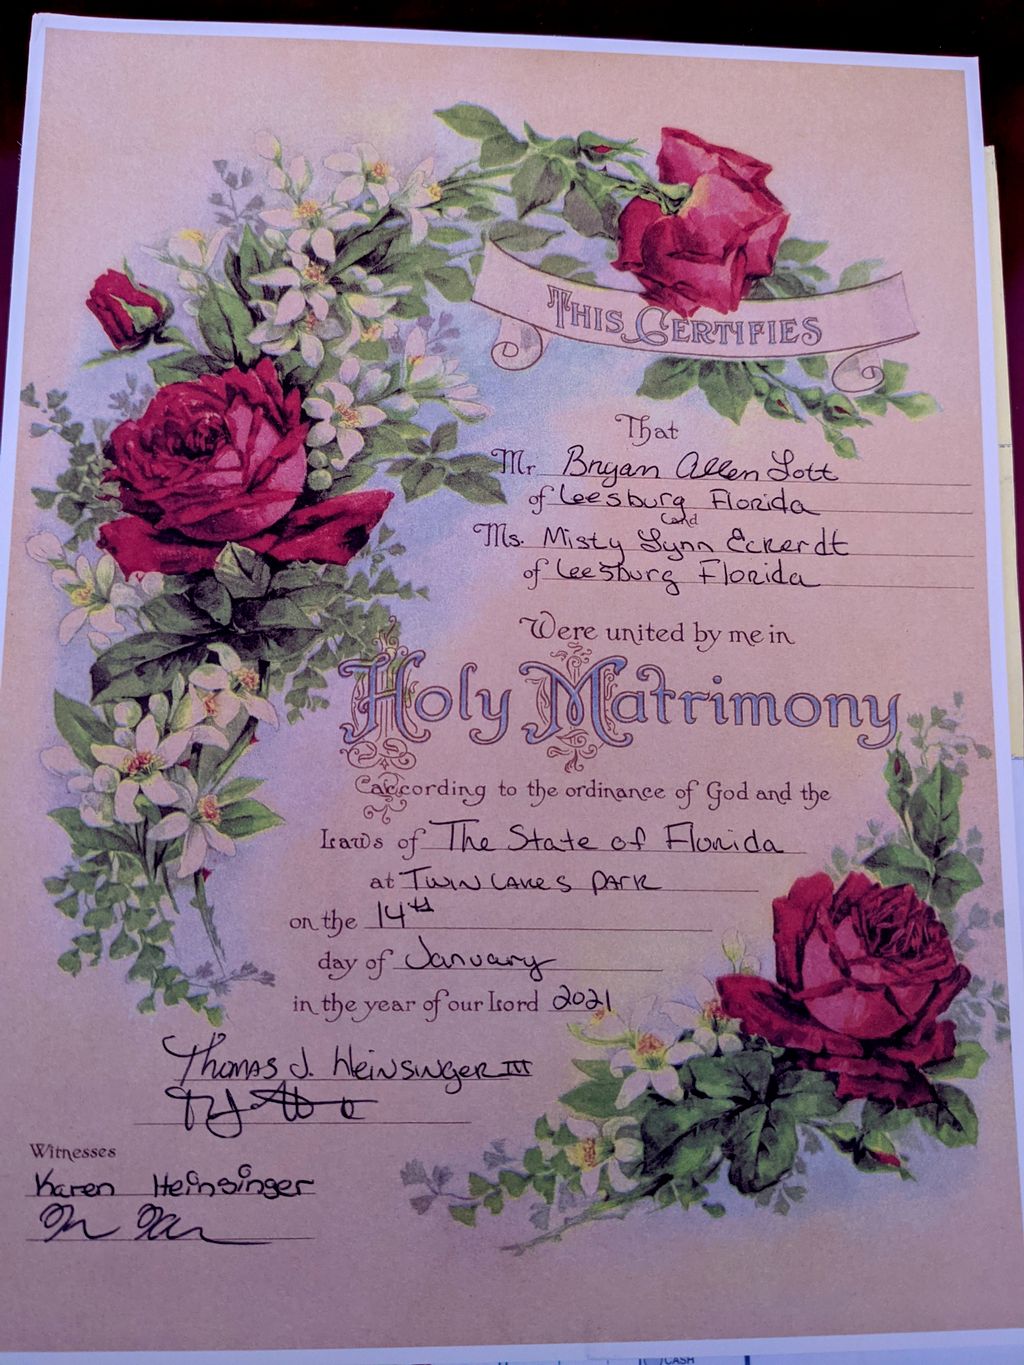 THIS CERTIFIES
That
Mr. Bryan Allen Lott
of Leesburg Florida
and
Ms. Misty Lynn Eckerdt
of Leesburg Florida
Were united by me in
Holy Matrimony
according to the ordinance of God and the
Laws of The State of Florida
at TWIN LAKES PARK
on the 14th
day of January
in the year of our Lord 2021
Thomas J. Heinsinger III
Witnesses
Karen Heinsinger
CASH